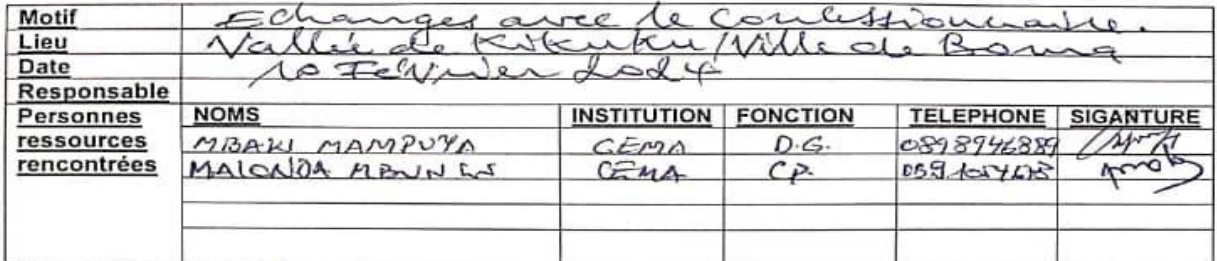 Motif Echanges avec le Concessionnaire.
Lieu Vallée de Kikuku / Ville de Boma
Date 10 Février 2024
Responsable
Personnes ressources rencontrées
NOMS INSTITUTION FONCTION TELEPHONE SIGANTURE
MBAKI MAMPUYA CEMA D.G. 0898946889
MAIONDA CEMA CP.